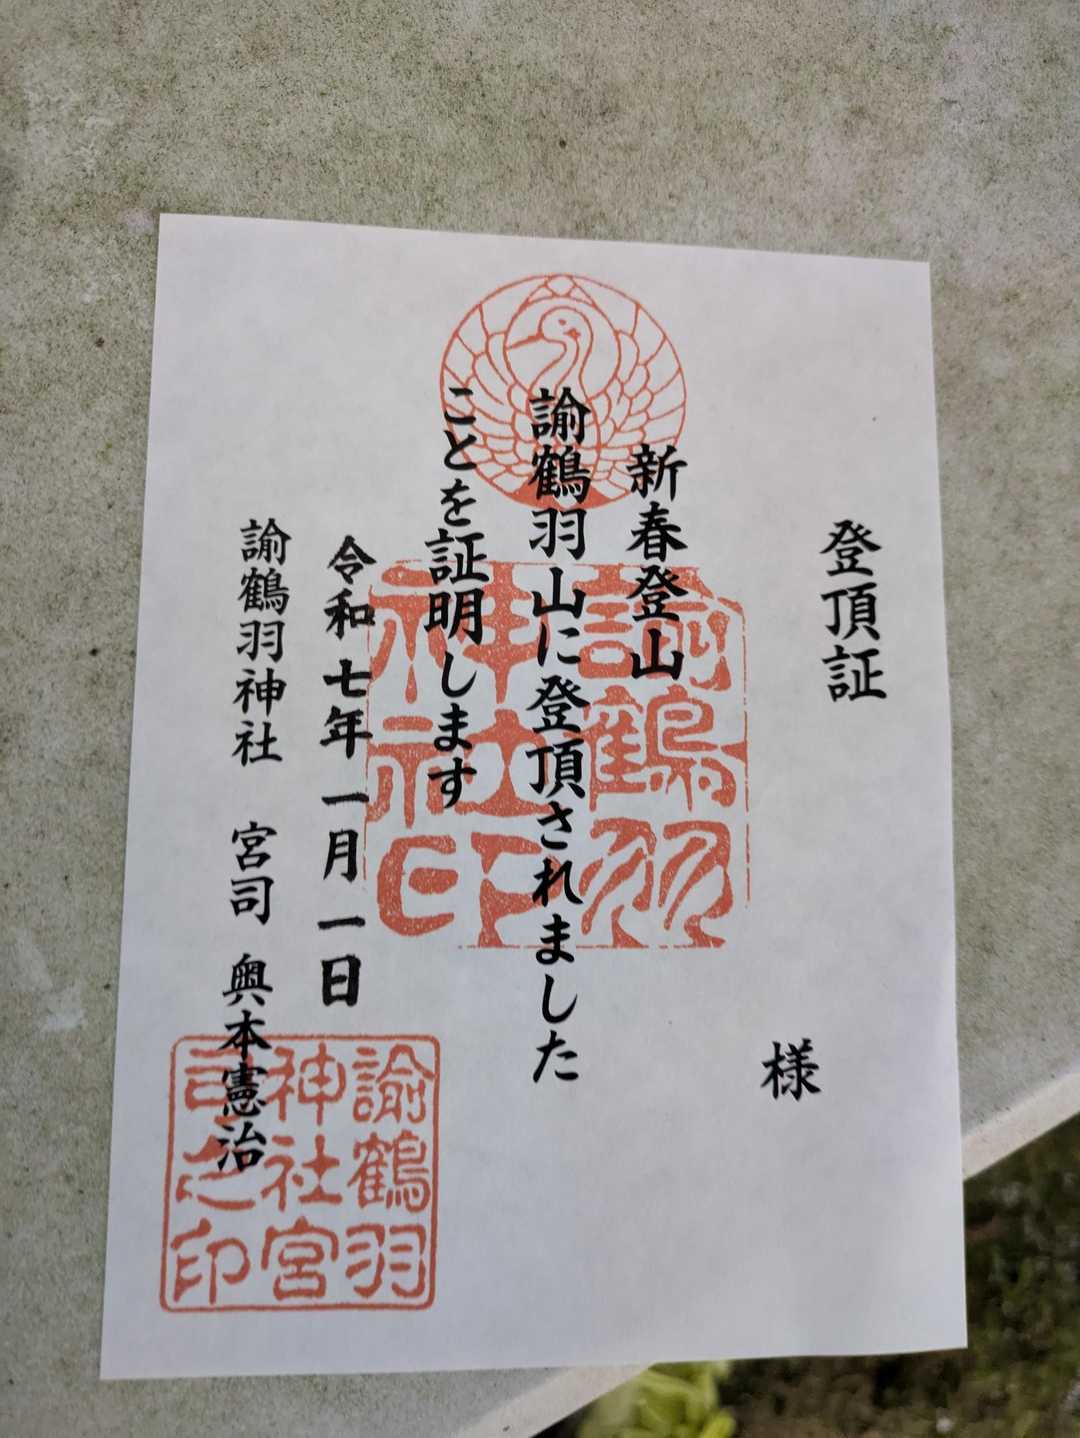 登頂証
様
新春登山
諭鶴羽山に登頂されました
ことを証明します
令和七年一月一日
諭鶴羽神社 宮司 奥本憲治
諭鶴羽
神社印
諭鶴羽
神社宮
司之印